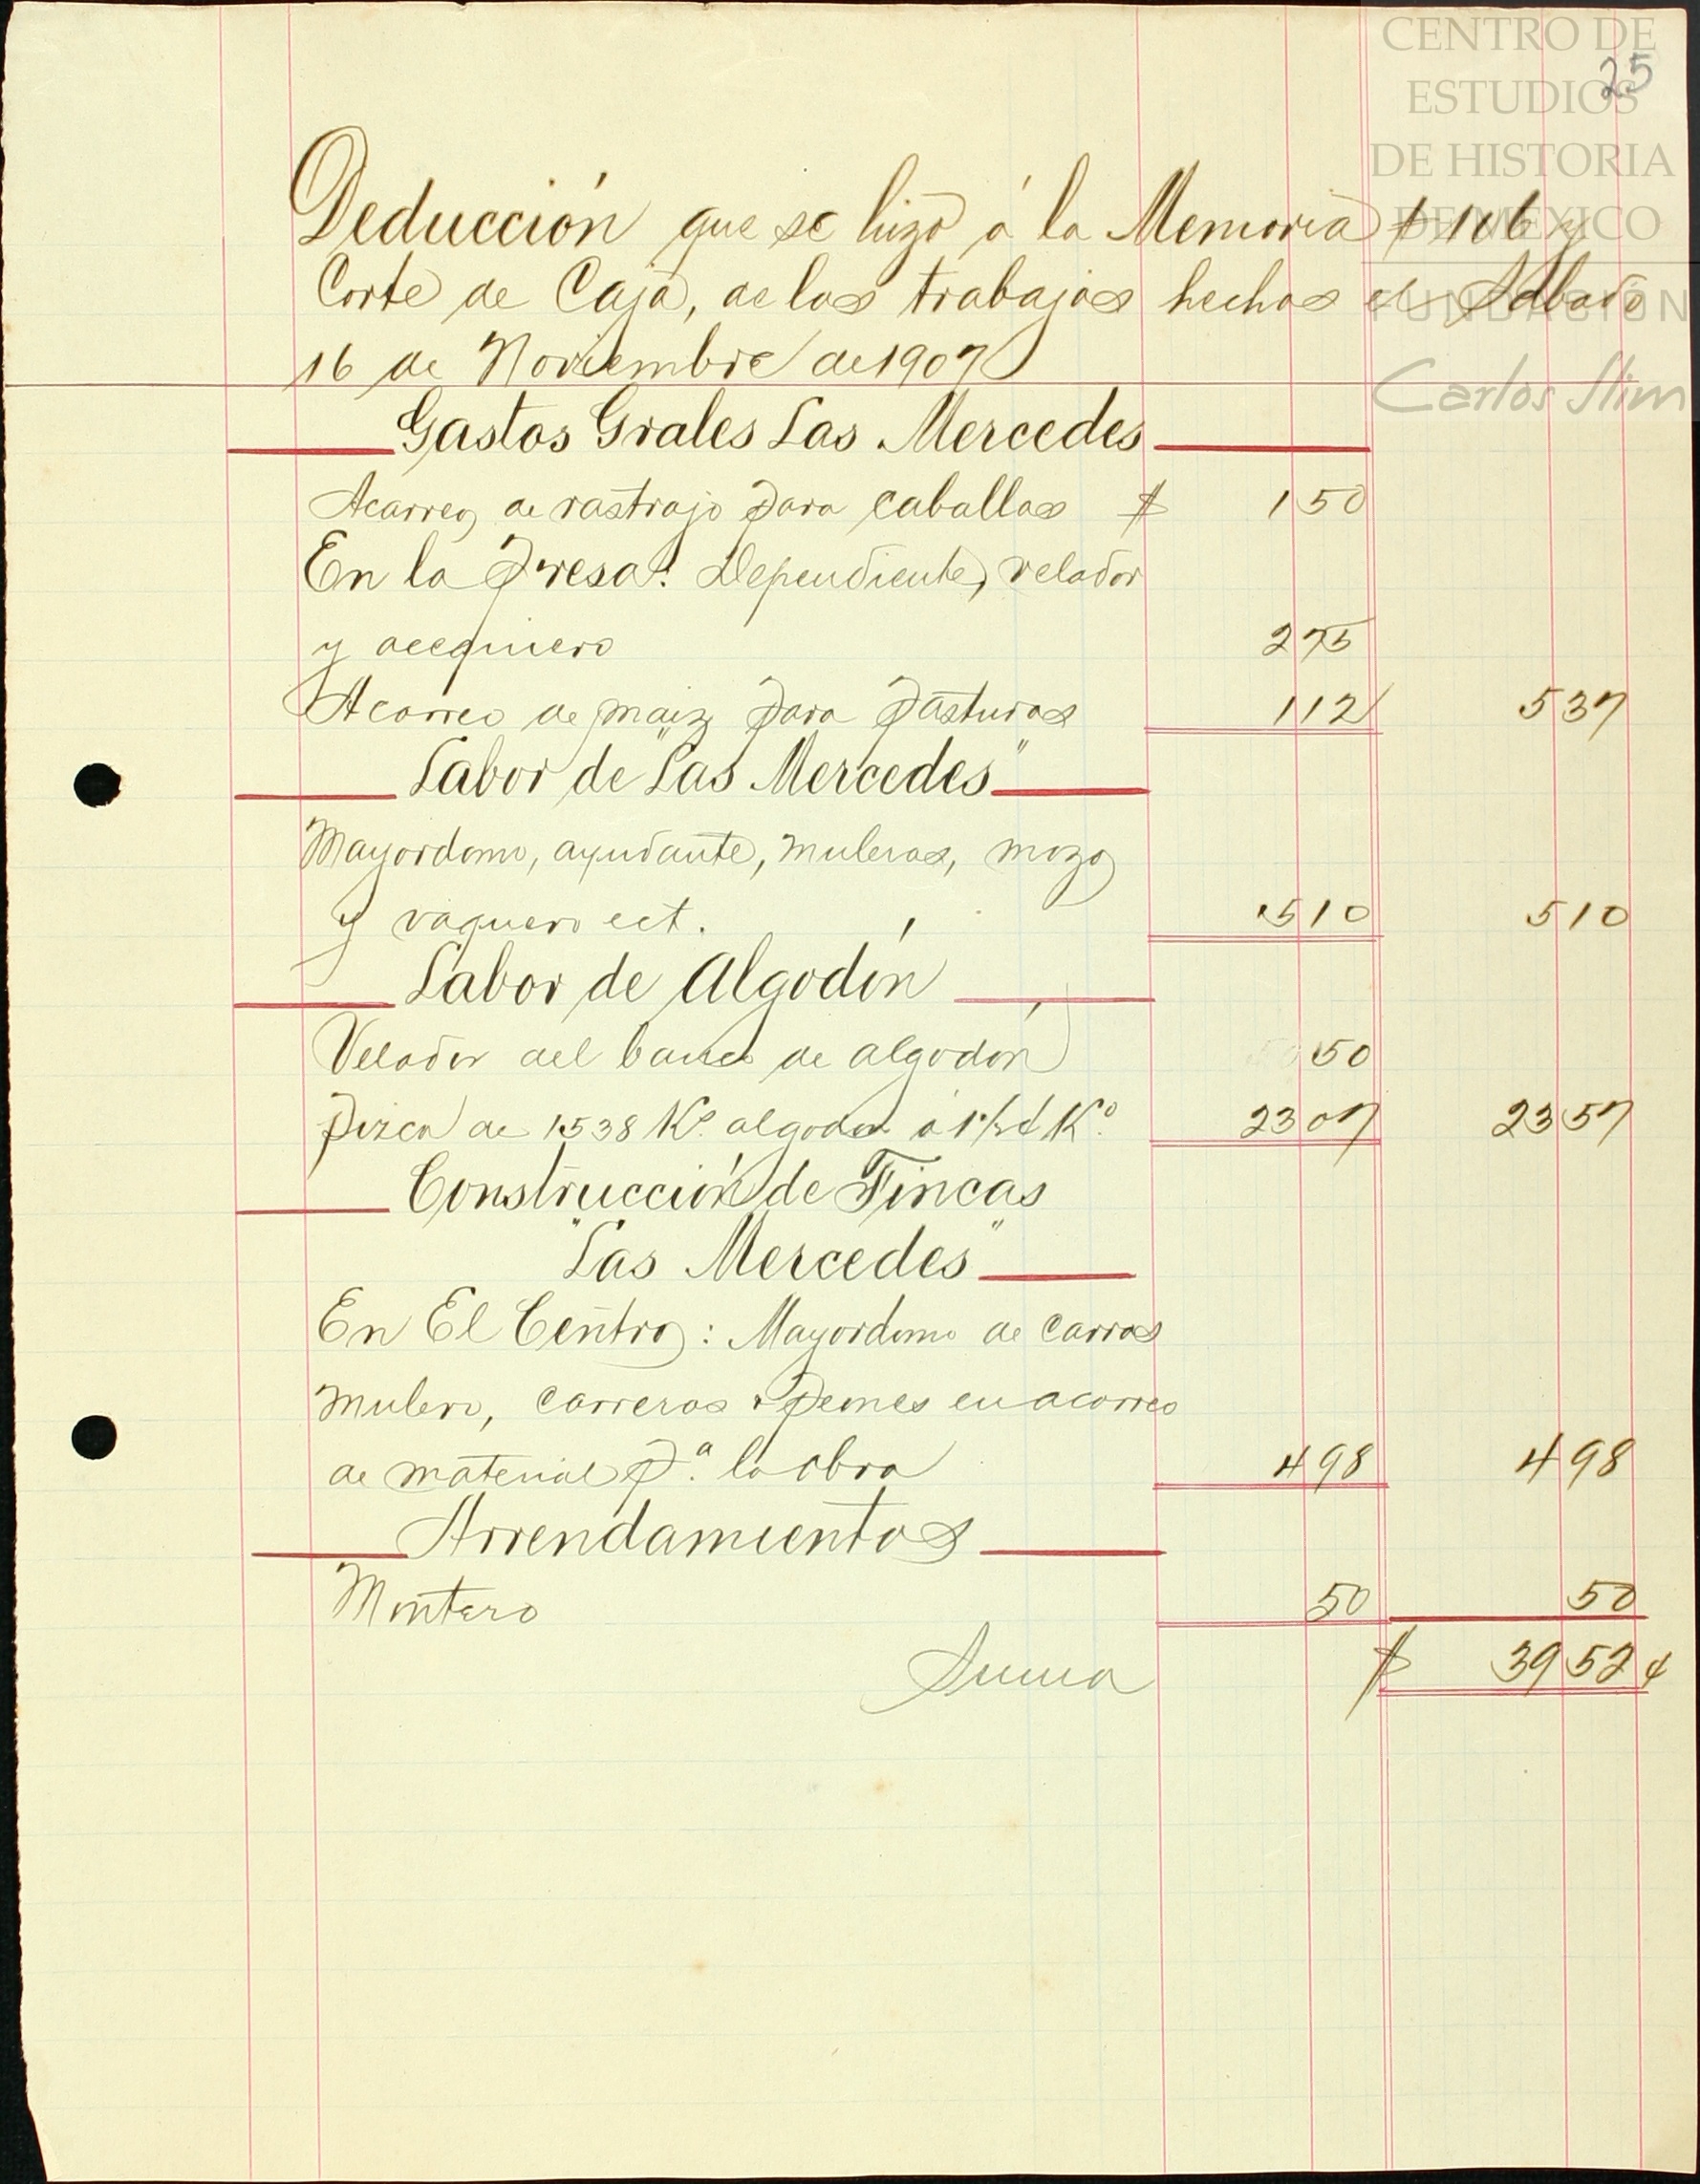 CENTRO DE
ESTUDIOS
DE HISTORIA
DE MEXICO
FUNDACIÓN
Carlos Slim
25
Deducción que se hizó á la Memoria # 106 y
Corte de Caja, de los trabajos hechos el Sábado
16 de Noviembre de 1907
Gastos Grales Las Mercedes
Acarreo de rastrajo para caballos $ 1 50
En la Presa: Dependiente, velador
y acequiero 2 75
Acarreo de maiz para pasturas 1 12 5 37
Labor de "Las Mercedes"
Mayordomo, ayudante, muleros, mozo
y vaquero ect. 5 10 5 10
Labor de Algodón
Velador del banco de algodón 50
Pizca de 1538 Ks. algodon á 1½ ¢ Ko. 23 07 23 57
Construcción de Fincas
"Las Mercedes"
En El Centro: Mayordomo de carros
mulero, carreros peones en acarreo
de material p.a la obra 4 98 4 98
Arrendamientos
Montero 50 50
Suma $ 39 52